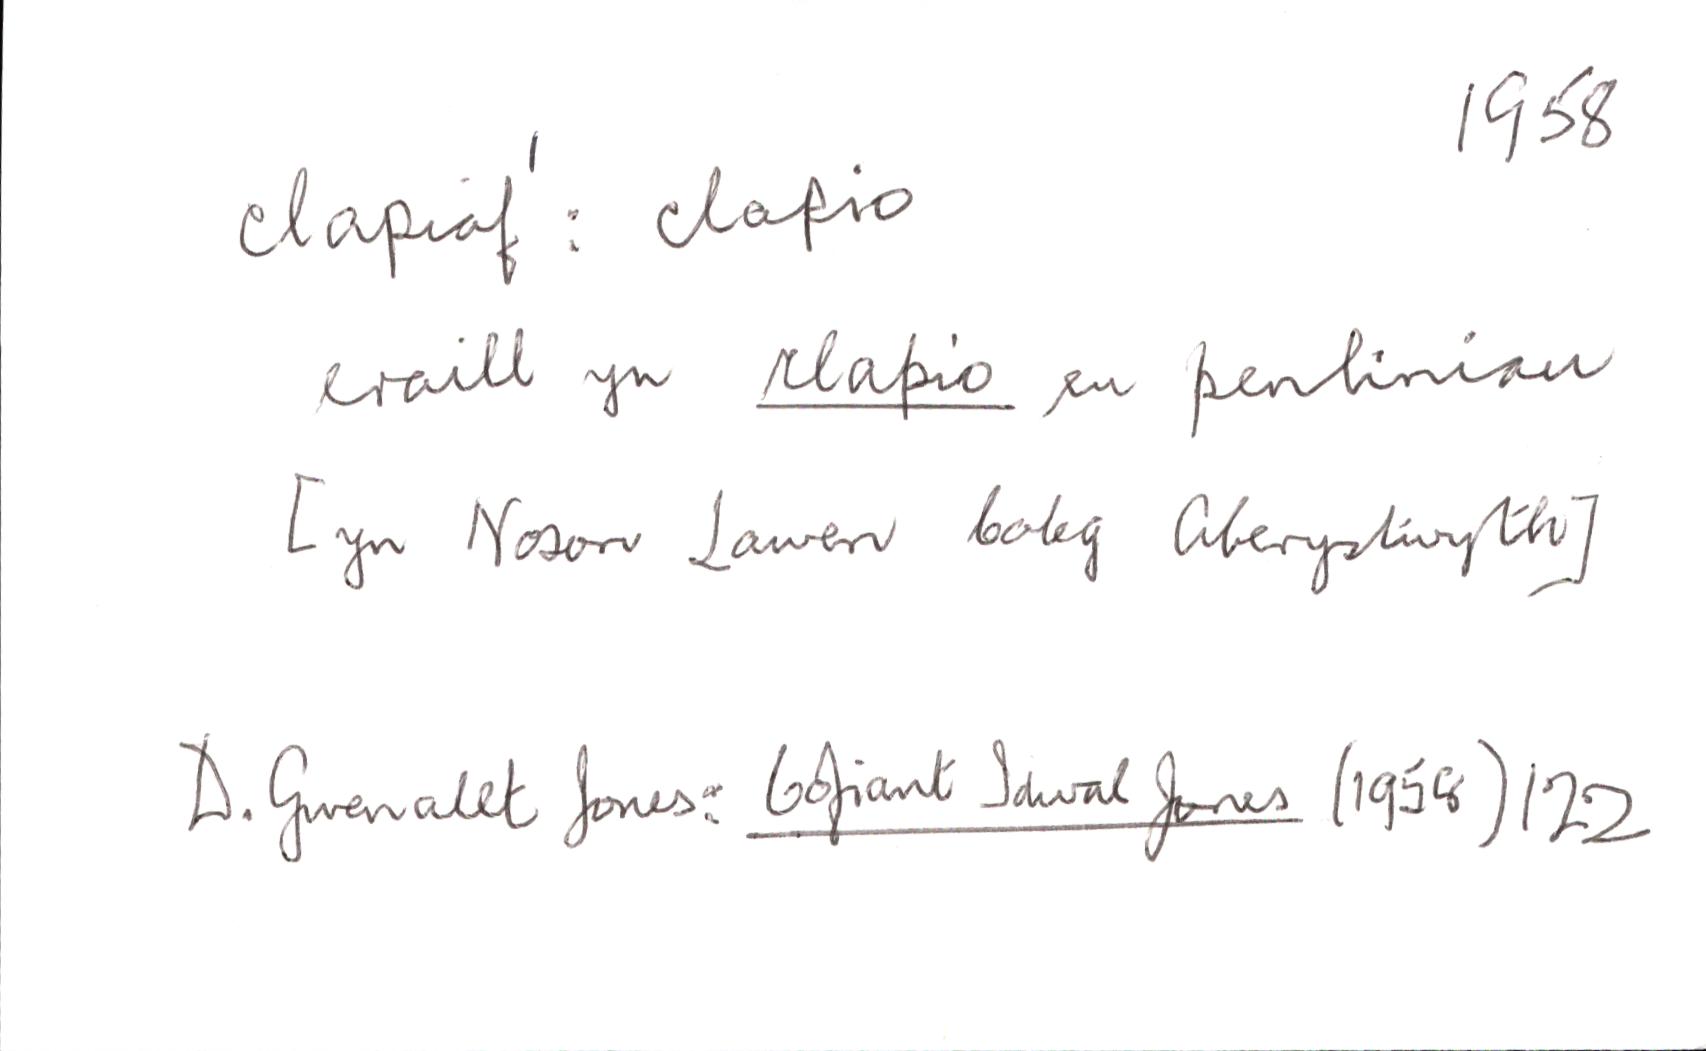 1958
clapiaf¹: clapio
eraill yn clapio eu penliniau
[yn Noson Lawen Coleg Aberystwyth]
D. Gwenallt Jones: Cofiant Idwal Jones (1958) 122